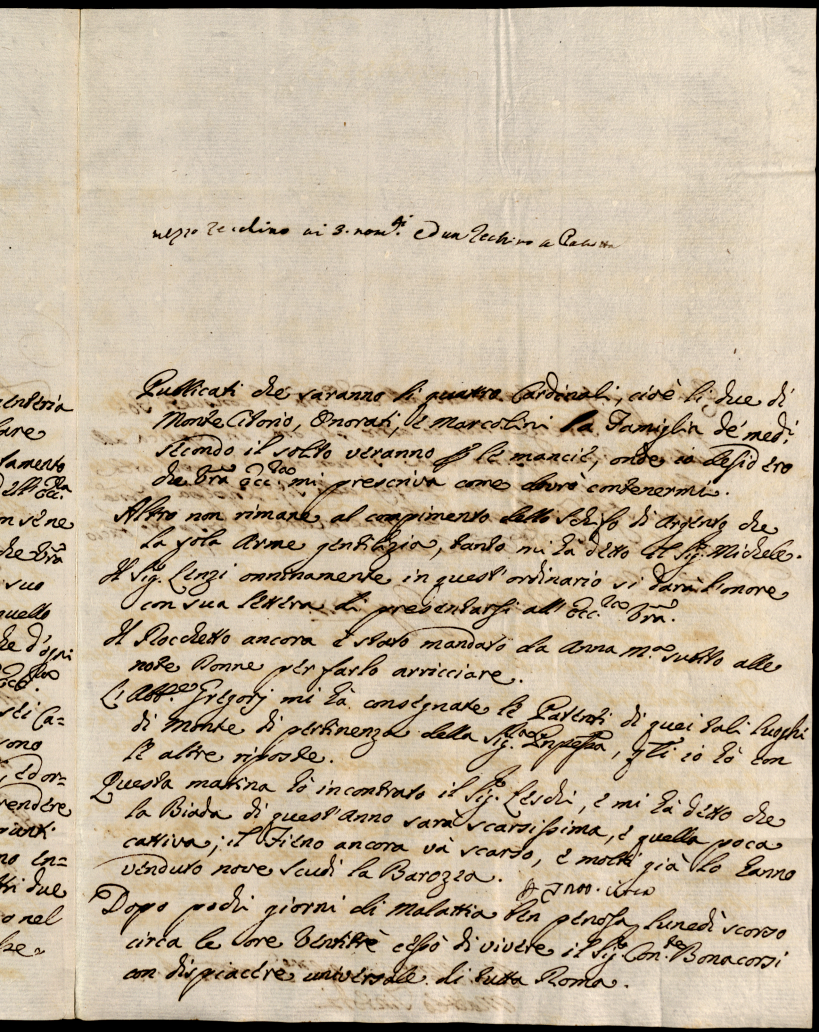 mezzo zecchino ai 3. nom.ti ed un zecchino a
enteria
fare
tamento
dell' Ecc.za
che Vra
suo
quello
che d'ogni
sei Ca-
sono
, ed or-
rendere
pianti
no en-
tri due
o nel
Publicati che saranno li quattro Cardinali, cioè li due di
Monte Citorio, Onorati, e Marcolini la Famiglia de' med.i
secondo il solito veranno p le mancie, onde io desidero
che Vra Ecc.za mi prescriva come dovrò contenermi.
Altro non rimane al compimento dello Schifo di Argento che
la sola Arme gentilizia, tanto mi hà detto il Sig. Michele.
Il Sig. Lenzi onninamente in quest'ordinario si darà l'onore
con sua lettera di presentarsi all' Ecc.za Vra.
Il Rocchetto ancora è stato mandato da Anna M.a subito alle
note Donne per farlo arricciare.
L'Abb.e Gregorj mi hà consegnate le Patenti di quei tali luoghi
di Monte di pertinenza della Sig.ra , q.li io hò con
le altre riposte.
Questa matina hò incontrato il Sig. Leschi, e mi hà detto che
la Biada di quest'anno sarà scarsissima, e quella poca
cattiva; il Fieno ancora và scarso, e molti già lo hanno
venduto nove scudi la Barozza.
Dopo pochi giorni di Malattia ben penosa lunedì scorso
circa le ore Ventitrè cessò di vivere il Sig. Con.te Bonacorsi
con dispiacere universale di tutta Roma.